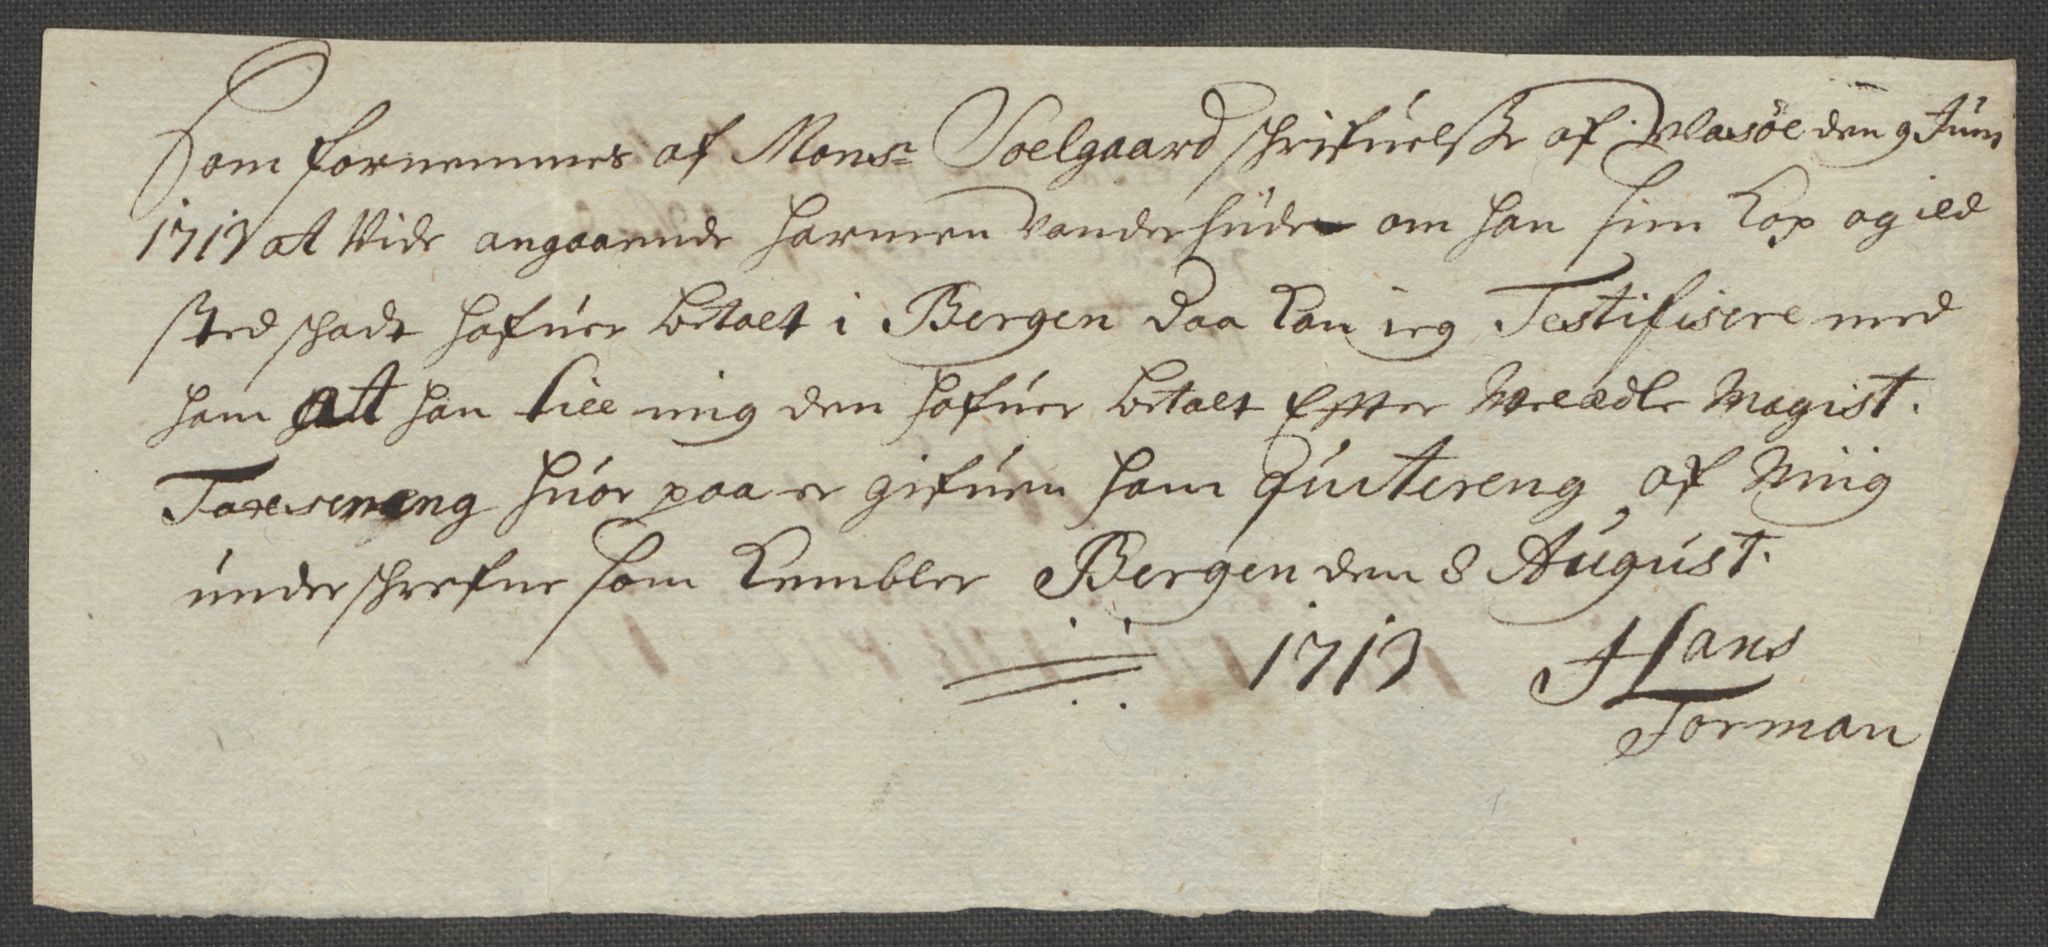 Som fornemmes af Monsr Soelgaard schrifúelsße af Masöe den 9 Júni
1713 at Vide angaaende Harmen Vanderhúde om han sin Kop og ild
sted schadt hafúer betalt i Bergen daa kan ieg Testifisere med
ham att han till mig den hafúer betalt Efter Veledle Magist.
Taxereng húor paa er gifúen ham Qúitereng af Miig
únderschrefne som Kembler Bergen den 8 Aúgúst.
1713 Hans
Torman